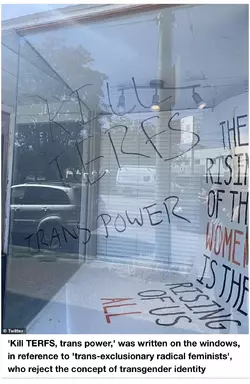 KILL
TERFS
TRANS POWER
THE
RISI
OF TH
WOMEN
IS THE
RISING
OF US
ALL
© Twitter
'Kill TERFS, trans power,' was written on the windows,
in reference to 'trans-exclusionary radical feminists',
who reject the concept of transgender identity